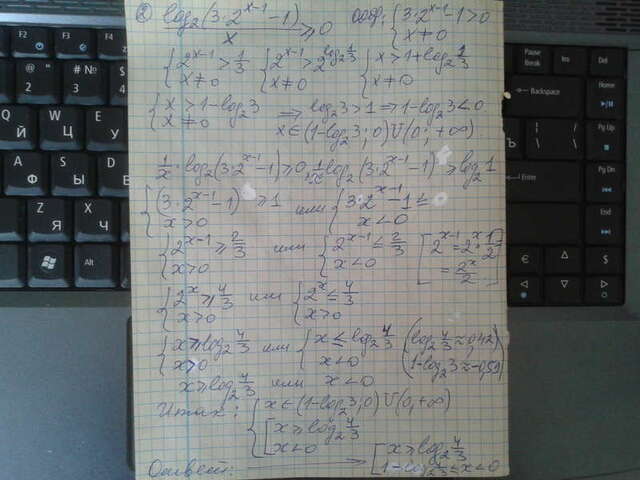 ② log₂(3·2ˣ⁻¹-1)/x ≥ 0 {3·2ˣ⁻¹-1>0 x≠0
{2ˣ⁻¹>1/3 x≠0 {2ˣ⁻¹>2^(log₂ 1/3) x≠0 {x>1+log₂ 1/3 x≠0
{x>1-log₂3 x≠0 ⇒ log₂3>1 ⇒ 1-log₂3<0
x∈(1-log₂3; 0)U(0; +∞)
1/x·log₂(3·2ˣ⁻¹-1)≥0 1/x log₂(3·2ˣ⁻¹-1)≥log₂1
{(3·2ˣ⁻¹-1)≥1 x>0 или {3·2ˣ⁻¹-1≤ x<0
{2ˣ⁻¹≥2/3 x>0 или {2ˣ⁻¹≤2/3 x<0 [2ˣ⁻¹=2ˣ·1/2 =2ˣ/2]
{2ˣ≥4/3 x>0 или {2ˣ≤4/3 x>0
{x≥log₂4/3 x>0 или {x≤log₂4/3 x<0 (log₂4/3≈0,42 1-log₂3≈-0,59)
x≥log₂4/3 или x<0
Итак: {x∈(1-log₂3; 0)U(0; +∞)
[x≥log₂4/3
x<0
Ответ: [x≥log₂4/3
Page Up
Pause Break
Ins
Del
Backspace
Home
Pg Up
Pg Dn
Enter
End
Alt